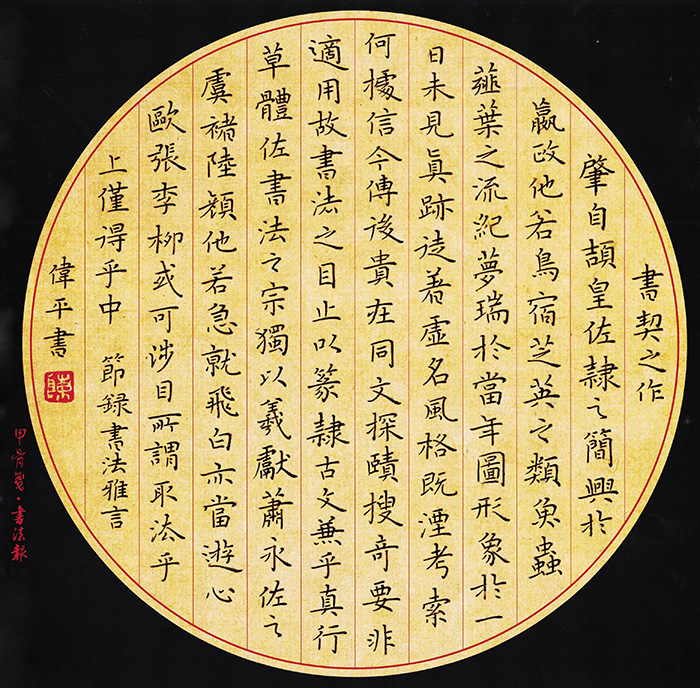 書契之作
肇自頡皇佐隸之簡興於
嬴政他若鳥宿芝英之類魚蟲
薤葉之流紀夢瑞於當年圖形象於一
日未見眞跡徒著虛名風格既湮考索
何據信今傳後貴在同文探賾搜奇要非
適用故書法之目止以篆隸古文兼乎真行
草體佐書法之宗獨以羲獻蕭永佐之
虞褚陸顏他若急就飛白亦當遊心
歐張李柳或可涉目所謂取法乎
上僅得乎中 節録書法雅言
偉平書
陳
甲骨箋·書法報